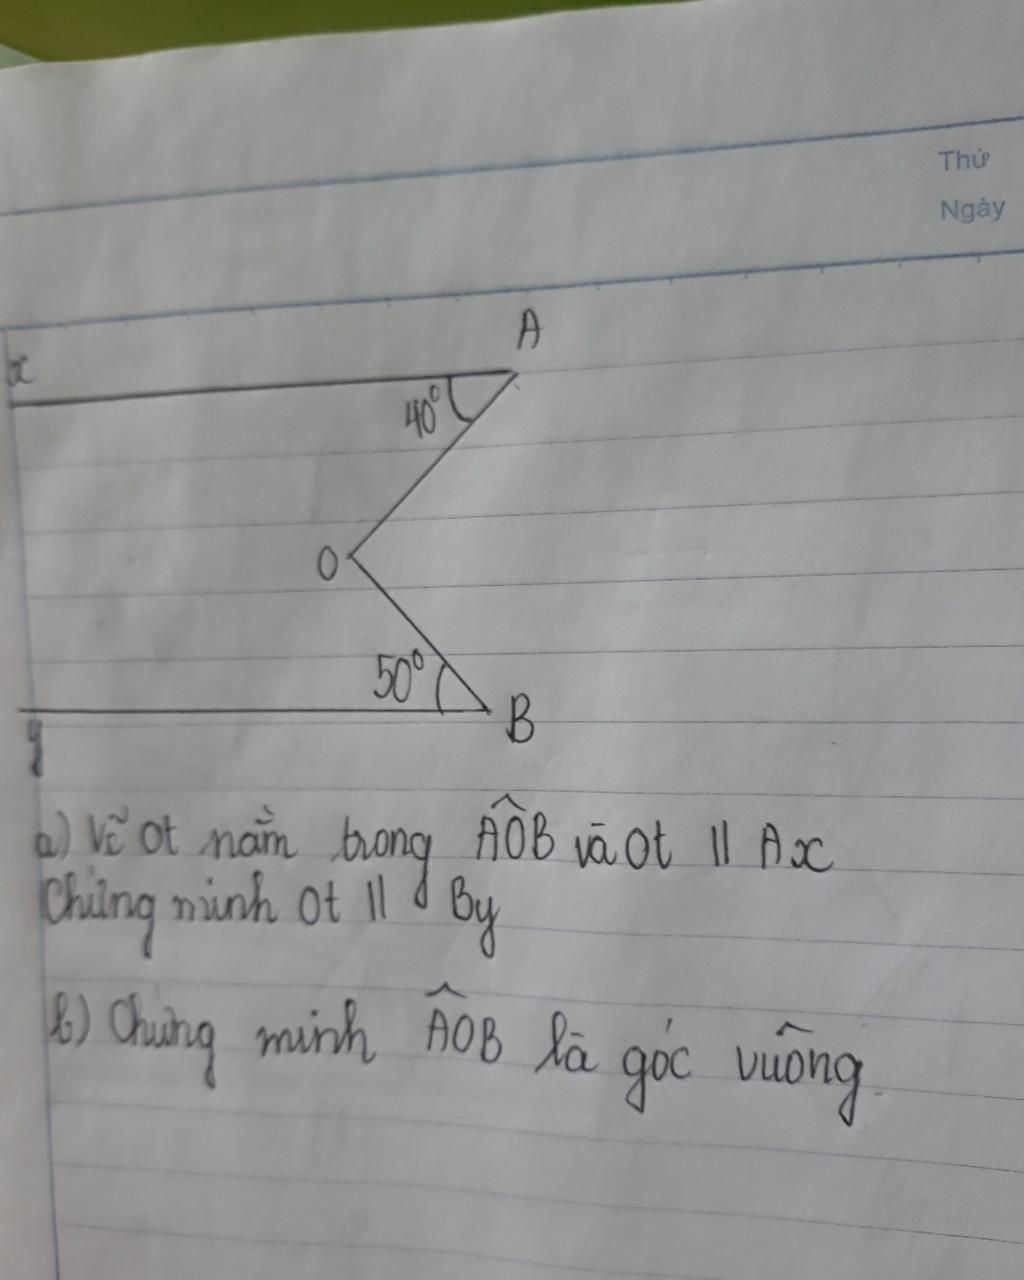 Thứ
Ngày
x
A
40°
O
50°
B
y
a) Vẽ Ot nằm trong AÔB và Ot // Ax
Chứng minh Ot // By
b) Chứng minh AÔB là góc vuông